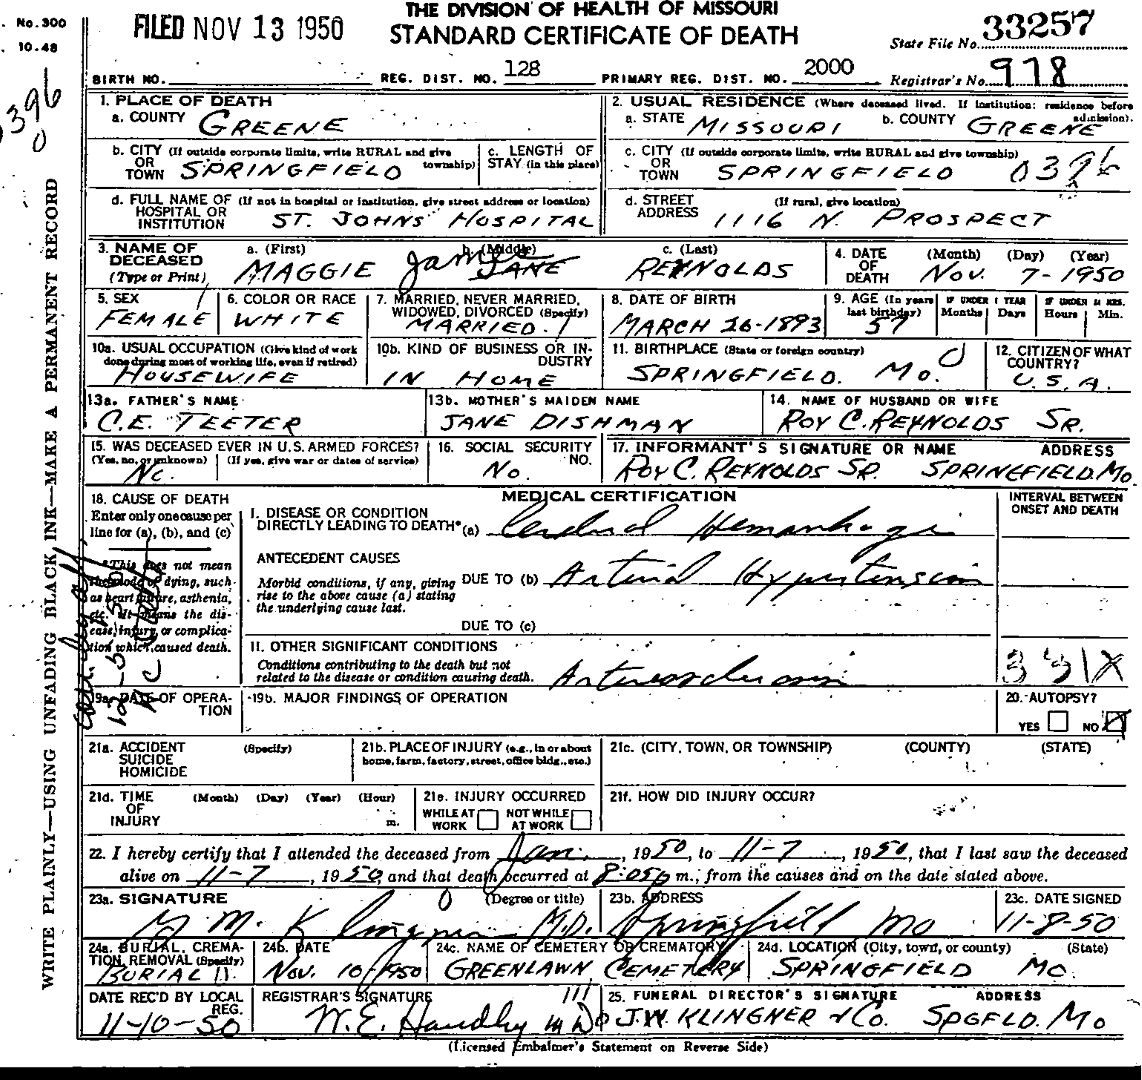 No. 300
10.48
FILED NOV 13 1950
THE DIVISION OF HEALTH OF MISSOURI
STANDARD CERTIFICATE OF DEATH
State File No. 33257
BIRTH NO. REG. DIST. NO. 128 PRIMARY REG. DIST. NO. 2000 Registrar's No. 978
396
0
WRITE PLAINLY—USING UNFADING BLACK INK—MAKE A PERMANENT RECORD
1. PLACE OF DEATH
a. COUNTY GREENE
b. CITY (If outside corporate limits, write RURAL and give township) OR TOWN SPRINGFIELD
c. LENGTH OF STAY (in this place)
d. FULL NAME OF HOSPITAL OR INSTITUTION (If not in hospital or institution, give street address or location) ST. JOHNS HOSPITAL
2. USUAL RESIDENCE (Where deceased lived. If institution: residence before admission).
a. STATE MISSOURI b. COUNTY GREENE
c. CITY (If outside corporate limits, write RURAL and give township) OR TOWN SPRINGFIELD 0396
d. STREET ADDRESS (If rural, give location) 1116 N. PROSPECT
3. NAME OF DECEASED (Type or Print)
a. (First) MAGGIE b. (Middle) JANE c. (Last) REYNOLDS
4. DATE OF DEATH (Month) (Day) (Year) NOV. 7-1950
5. SEX FEMALE
6. COLOR OR RACE WHITE
7. MARRIED, NEVER MARRIED, WIDOWED, DIVORCED (Specify) MARRIED. 1
8. DATE OF BIRTH MARCH 26-1893
9. AGE (In years last birthday) 57 IF UNDER 1 YEAR Months Days IF UNDER 24 HRS. Hours Min.
10a. USUAL OCCUPATION (Give kind of work done during most of working life, even if retired) HOUSEWIFE
10b. KIND OF BUSINESS OR INDUSTRY IN HOME
11. BIRTHPLACE (State or foreign country) SPRINGFIELD. MO. 0
12. CITIZEN OF WHAT COUNTRY? U.S.A.
13a. FATHER'S NAME C.E. TEETER
13b. MOTHER'S MAIDEN NAME JANE DISHMAN
14. NAME OF HUSBAND OR WIFE ROY C. REYNOLDS SR.
15. WAS DECEASED EVER IN U.S. ARMED FORCES? (Yes, no, or unknown) (If yes, give war or dates of service) No.
16. SOCIAL SECURITY NO. No.
17. INFORMANT'S SIGNATURE OR NAME ADDRESS
ROY C. REYNOLDS SR. SPRINGFIELD, Mo.
18. CAUSE OF DEATH
Enter only one cause per line for (a), (b), and (c)
*This does not mean the mode of dying, such as heart failure, asthenia, etc. It means the disease, injury, or complication which caused death.
12-5-50
MEDICAL CERTIFICATION
INTERVAL BETWEEN ONSET AND DEATH
I. DISEASE OR CONDITION DIRECTLY LEADING TO DEATH* (a) Cerebral Hemorrhage
ANTECEDENT CAUSES
Morbid conditions, if any, giving rise to the above cause (a) stating the underlying cause last.
DUE TO (b) Arterial Hypertension
DUE TO (c)
II. OTHER SIGNIFICANT CONDITIONS
Conditions contributing to the death but not related to the disease or condition causing death. Arteriosclerosis
331X
19a. DATE OF OPERATION
19b. MAJOR FINDINGS OF OPERATION
20. AUTOPSY?
YES NO X
21a. ACCIDENT SUICIDE HOMICIDE (Specify)
21b. PLACE OF INJURY (e.g., in or about home, farm, factory, street, office bldg., etc.)
21c. (CITY, TOWN, OR TOWNSHIP) (COUNTY) (STATE)
21d. TIME OF INJURY (Month) (Day) (Year) (Hour) m.
21e. INJURY OCCURRED WHILE AT WORK NOT WHILE AT WORK
21f. HOW DID INJURY OCCUR?
22. I hereby certify that I attended the deceased from Jan., 1950, to 11-7, 1950, that I last saw the deceased
alive on 11-7, 1950, and that death occurred at 8:05p m., from the causes and on the date stated above.
23a. SIGNATURE (Degree or title) M.D.
23b. ADDRESS Springfield Mo
23c. DATE SIGNED 11-8-50
24a. BURIAL, CREMATION, REMOVAL (Specify) BURIAL
24b. DATE Nov. 10, 1950
24c. NAME OF CEMETERY OR CREMATORY GREENLAWN CEMETERY
24d. LOCATION (City, town, or county) (State) SPRINGFIELD MO.
DATE REC'D BY LOCAL REG. 11-10-50
REGISTRAR'S SIGNATURE W.E. Handley MD
25. FUNERAL DIRECTOR'S SIGNATURE ADDRESS
J.W. KLINGNER & Co. SPGFLD. Mo
(Licensed Embalmer's Statement on Reverse Side)